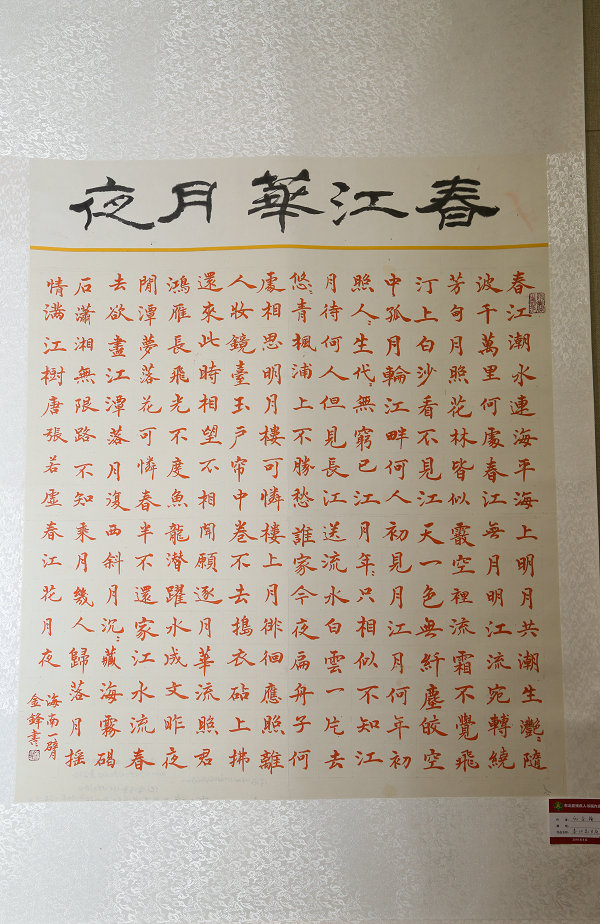 春江華月夜
春江潮水連海平海上明月共潮生灩〻隨
波千萬里何處春江無月明江流宛轉繞
芳甸月照花林皆似霰空裡流霜不覺飛
汀上白沙看不見江天一色無纖塵皎空
中孤月輪江畔何人初見月江月何年初
照人〻生代〻無窮已江月年〻只相似不知江
月待何人但見長江送流水白雲一片去
悠〻青楓浦上不勝愁誰家今夜扁舟子何
處相思明月樓可憐樓上月徘徊應照離
人妝鏡臺玉戶帘中卷不去搗衣砧上拂
還來此時相望不相聞願逐月華流照君
鴻雁長飛光不度魚龍潛躍水成文昨夜
閒潭夢落花可憐春半不還家江水流春
去欲盡江潭落月復西斜月沉〻藏海霧碣
石瀟湘無限路不知乘月幾人歸落月搖
情滿江樹唐張若虛春江花月夜
海南一臂
金鋒書